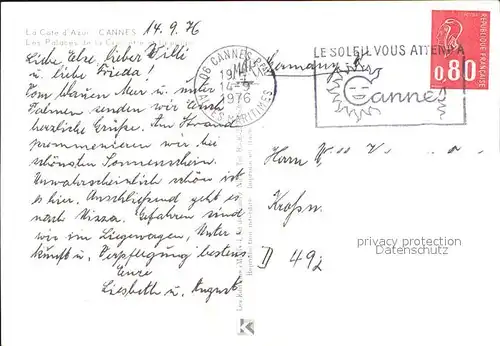 La Cote d'Azur CANNES
14.9.76
Les Palaces de la
Liebe Else, lieber Willi
u. liebe Frieda!
Vom blauen Meer u. unter
Palmen senden wir Euch
herzliche Grüße. Am Strand
promenieren wir bei
schönsten Sonnenschein.
Unwahrscheinlich schön ist
es hier. Anschließend geht es
nach Nizza. Gefahren sind
wir im Liegewagen, Unter-
kunft u. Verpflegung bestens.
Eure
Liesbeth u. August
Germany
06 CANNES
19H
14-9
1976
ALPES MARITIMES
LE SOLEIL VOUS ATTEND A
Cannes
REPUBLIQUE FRANCAISE
0,80
Herrn
D 49
privacy protection
Datenschutz
K